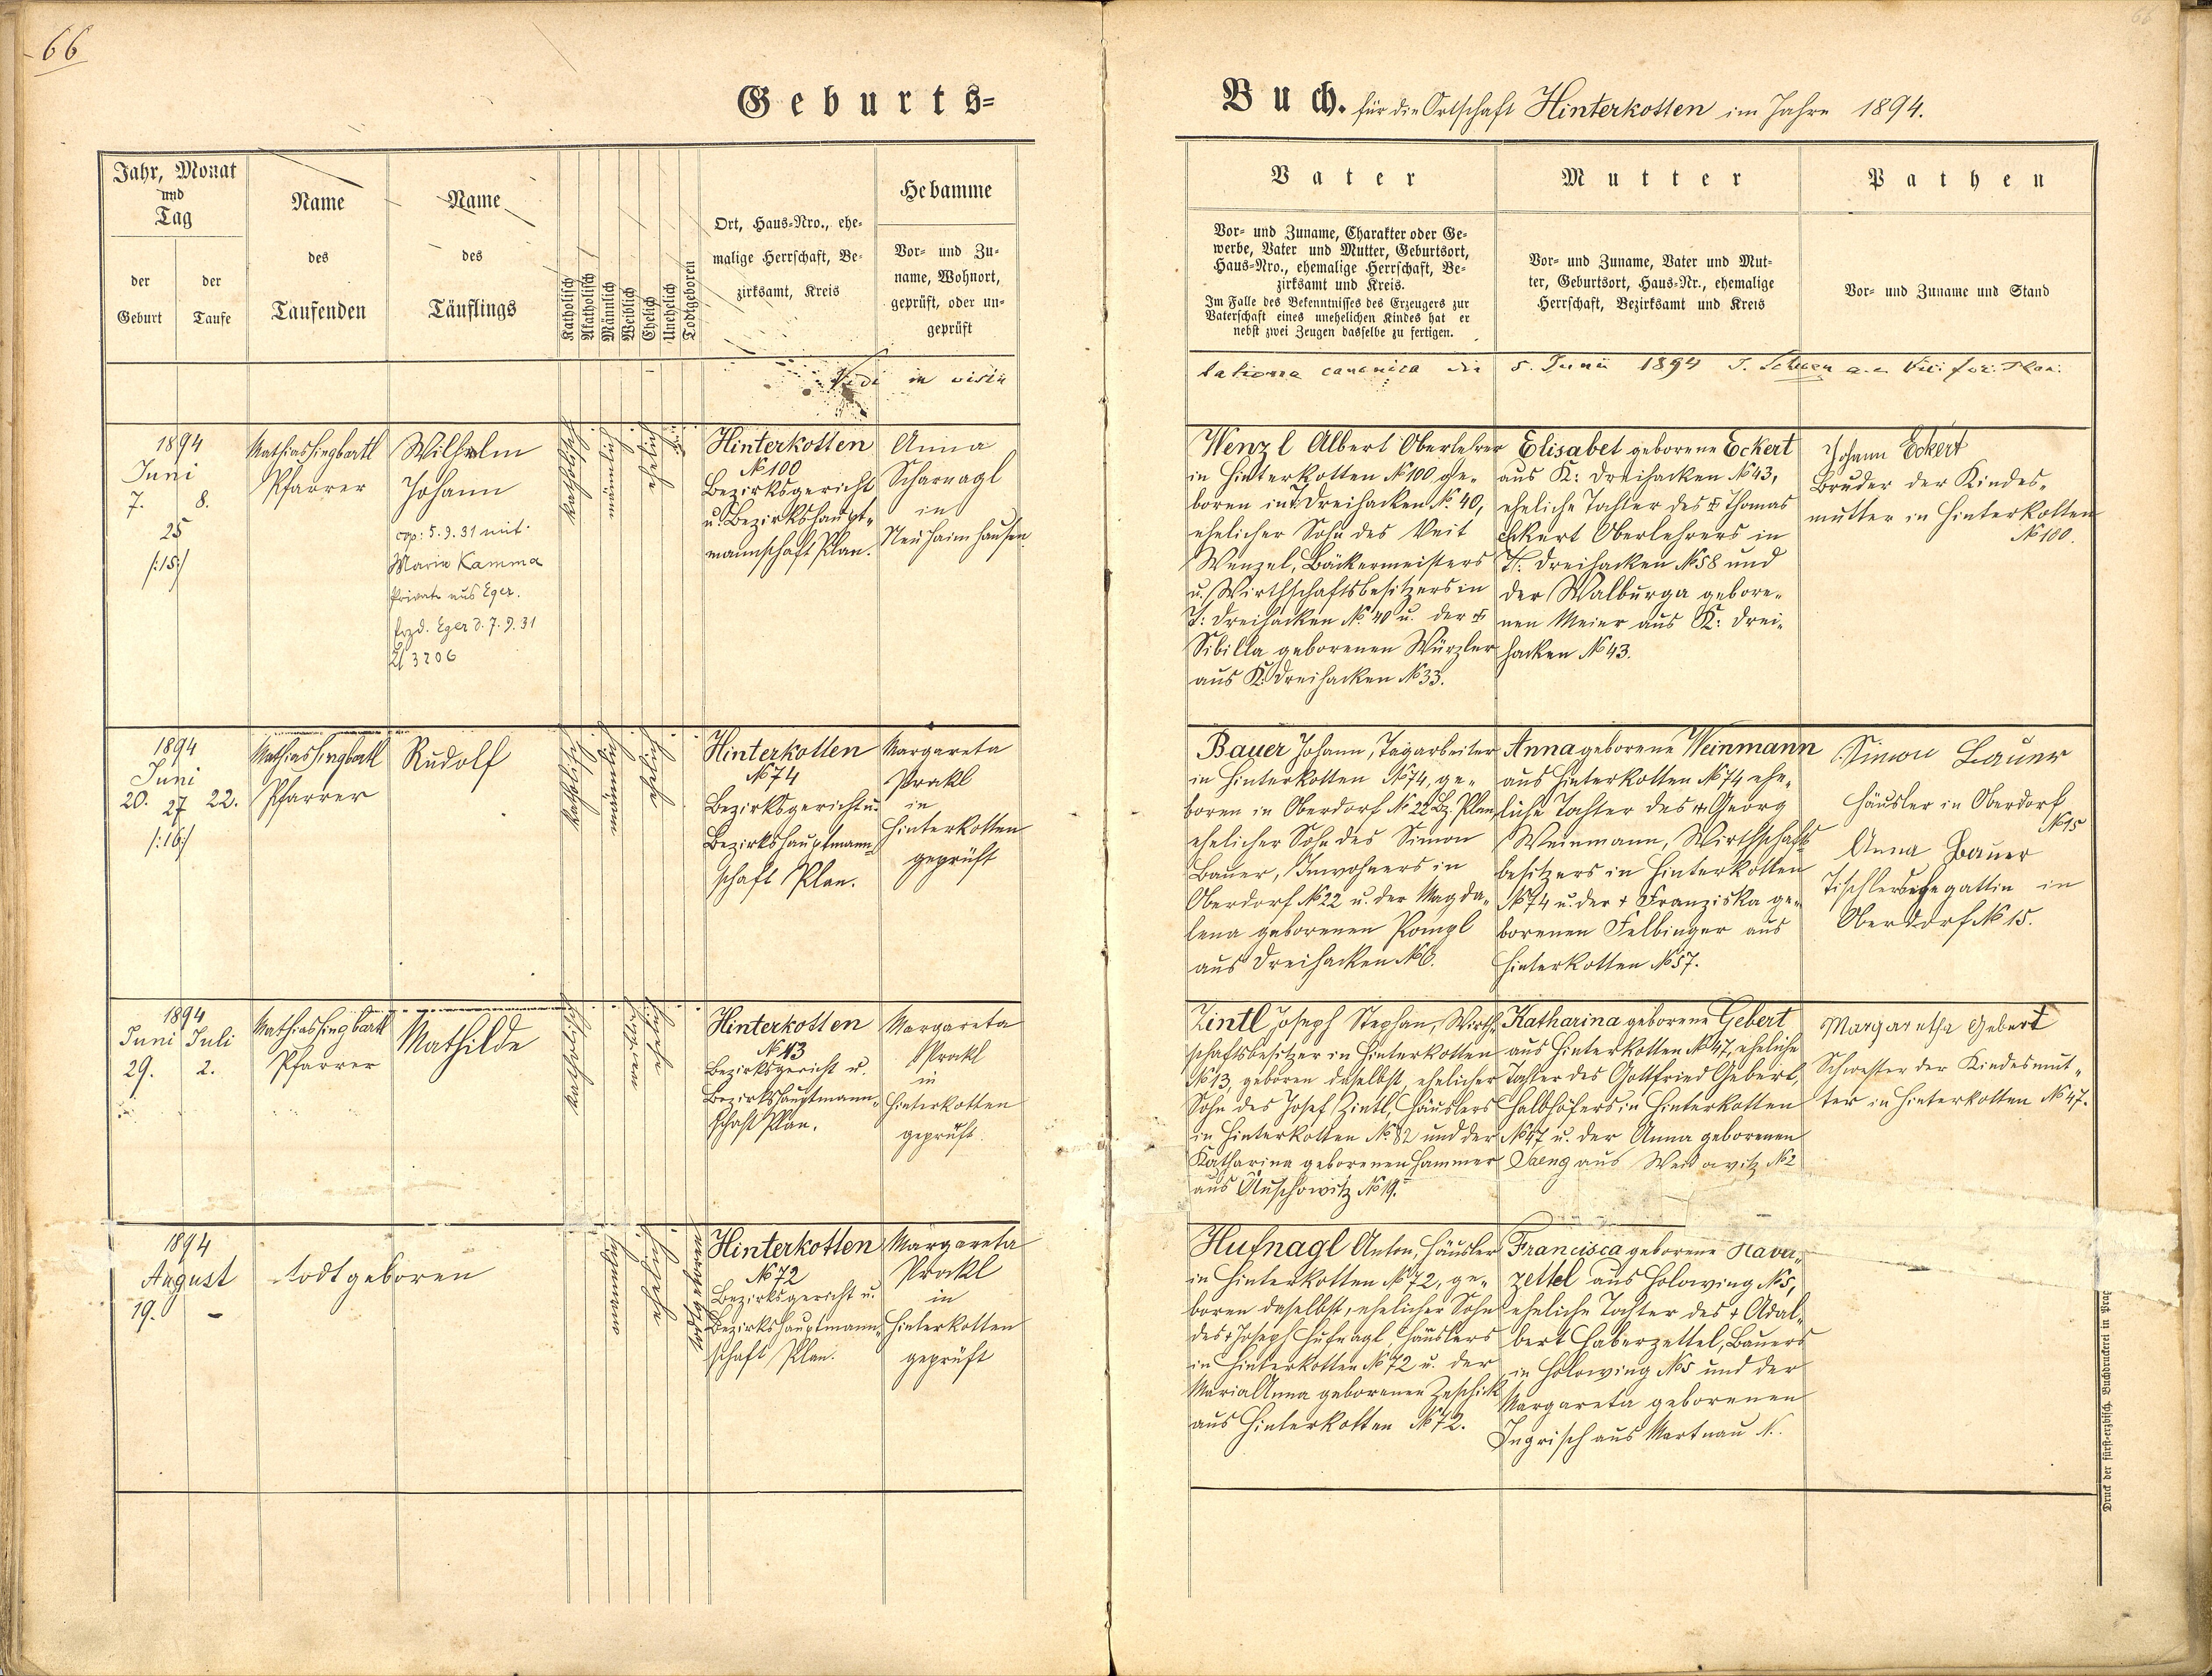 66
66
Geburts-
Buch. für die Ortschaft Hinterkotten im Jahre 1894.
Jahr, Monat
und
Tag
der
Geburt
der
Taufe
Name
des
Taufenden
Name
des
Täuflings
Katholisch
Akatholisch
Männlich
Weiblich
Ehelich
Unehelich
Todtgeboren
Ort, Haus-Nro., ehe-
malige Herrschaft, Be-
zirksamt, Kreis
Hebamme
Vor- und Zu-
name, Wohnort,
geprüft, oder un-
geprüft
Vater
Vor- und Zuname, Charakter oder Ge-
werbe, Vater und Mutter, Geburtsort,
Haus-Nro., ehemalige Herrschaft, Be-
zirksamt und Kreis.
Im Falle des Bekenntnisses des Erzeugers zur
Vaterschaft eines unehelichen Kindes hat er
nebst zwei Zeugen dasselbe zu fertigen.
Mutter
Vor- und Zuname, Vater und Mut-
ter, Geburtsort, Haus-Nr., ehemalige
Herrschaft, Bezirksamt und Kreis
Pathen
Vor- und Zuname und Stand
Vidi in visi-
tatione canonica die 5. Junii 1894
1894
Juni
7. 8.
25
/:15:/
Mathias Singbartl
Pfarrer
Wilhelm
Johann
cop: 5.9.31 mit
Marie Kamma
Private aus Eger.
Erzd. Eger d. 7.9.31
Zl 3206
katholisch
männlich
ehelich
Hinterkotten
No 100
Bezirksgericht
u. Bezirkshaupt-
mannschaft Plan.
Anna
Scharnagl
in
Neuhaimhausen
Wenzl Albert Oberlehrer
in Hinterkotten No 100, ge-
boren in T. Dreihacken No. 40,
ehelicher Sohn des Veit
Wenzel, Bäckermeisters
u. Wirthschaftsbesitzers in
T: Dreihacken No. 40 u. der †
Sibilla geborenen Würzler
aus K: Dreihacken No 33.
Elisabet geborene Eckert
aus K: Dreihacken No 43,
eheliche Tochter des † Thomas
Eckert Oberlehrers in
T: Dreihacken No 58 und
der Walburga gebore-
nen Meier aus K: Drei-
hacken No 43.
Johann Eckert
Bruder der Kindes-
mutter in Hinterkotten
No 100.
1894
Juni
20. 27 22.
/:16:/
Mathias Singbartl
Pfarrer
Rudolf
katholisch
männlich
ehelich
Hinterkotten
No 74
Bezirksgericht u.
Bezirkshauptmann-
schaft Plan.
Margareta
Prokl
in
Hinterkotten
geprüft
Bauer Johann, Tagarbeiter
in Hinterkotten No 74, ge-
boren in Oberdorf No 22 Bz. Plan,
ehelicher Sohn des Simon
Bauer, Inwohners in
Oberdorf No 22 u. der Magda-
lena geborenen Rompl
aus Dreihacken No 6.
Anna geborene Weinmann
aus Hinterkotten No 74 ehe-
liche Tochter des † Georg
Weinmann, Wirthschafts-
besitzers in Hinterkotten
No 74 u. der † Franziska ge-
borenen Felbinger aus
Hinterkotten No 57.
Simon Bauer
Häusler in Oberdorf
No 15
Anna Bauer
Tischlersehegattin in
Oberdorf No 15.
1894
Juni Juli
29. 2.
Mathias Singbartl
Pfarrer
Mathilde
katholisch
weiblich
ehelich
Hinterkotten
No 13
Bezirksgericht u.
Bezirkshauptmann-
schaft Plan.
Margareta
Prokl
in
Hinterkotten
geprüft.
Zintl Joseph Stephan, Wirth-
schaftsbesitzer in Hinterkotten
No 13, geboren daselbst, ehelicher
Sohn des Josef Zintl, Häuslers
in Hinterkotten No. 82 und der
Katharina geborenen Hammer
aus Auschowitz No 19.
Katharina geborene Gebert
aus Hinterkotten No 47, eheliche
Tochter des Gottfried Gebert,
Halbhöfers in Hinterkotten
No 47 u. der Anna geborenen
aus No 2
Margaretha Gebert
Schwester der Kindesmut-
ter in Hinterkotten No 47.
1894
August
19. –
Todtgeboren
männlich
ehelich
todtgeboren
Hinterkotten
No 72
Bezirksgericht u.
Bezirkshauptmann-
schaft Plan.
Margareta
Prokl
in
Hinterkotten
geprüft
Hufnagl Anton, Häusler
in Hinterkotten No 72, ge-
boren daselbst, ehelicher Sohn
des † Joseph Hufnagl Häuslers
in Hinterkotten No 72 u. der
Maria Anna geborenen Zeschick
aus Hinterkotten No 72.
Francisca geborene Haber-
zettel aus Holowing No 5,
eheliche Tochter des † Adal-
bert Haberzettel, Bauers
in Holowing No 5 und der
Margareta geborenen
Ingrisch aus Martnau N.
Druck der fürst-erzbisch. Buchdruckerei in Prag